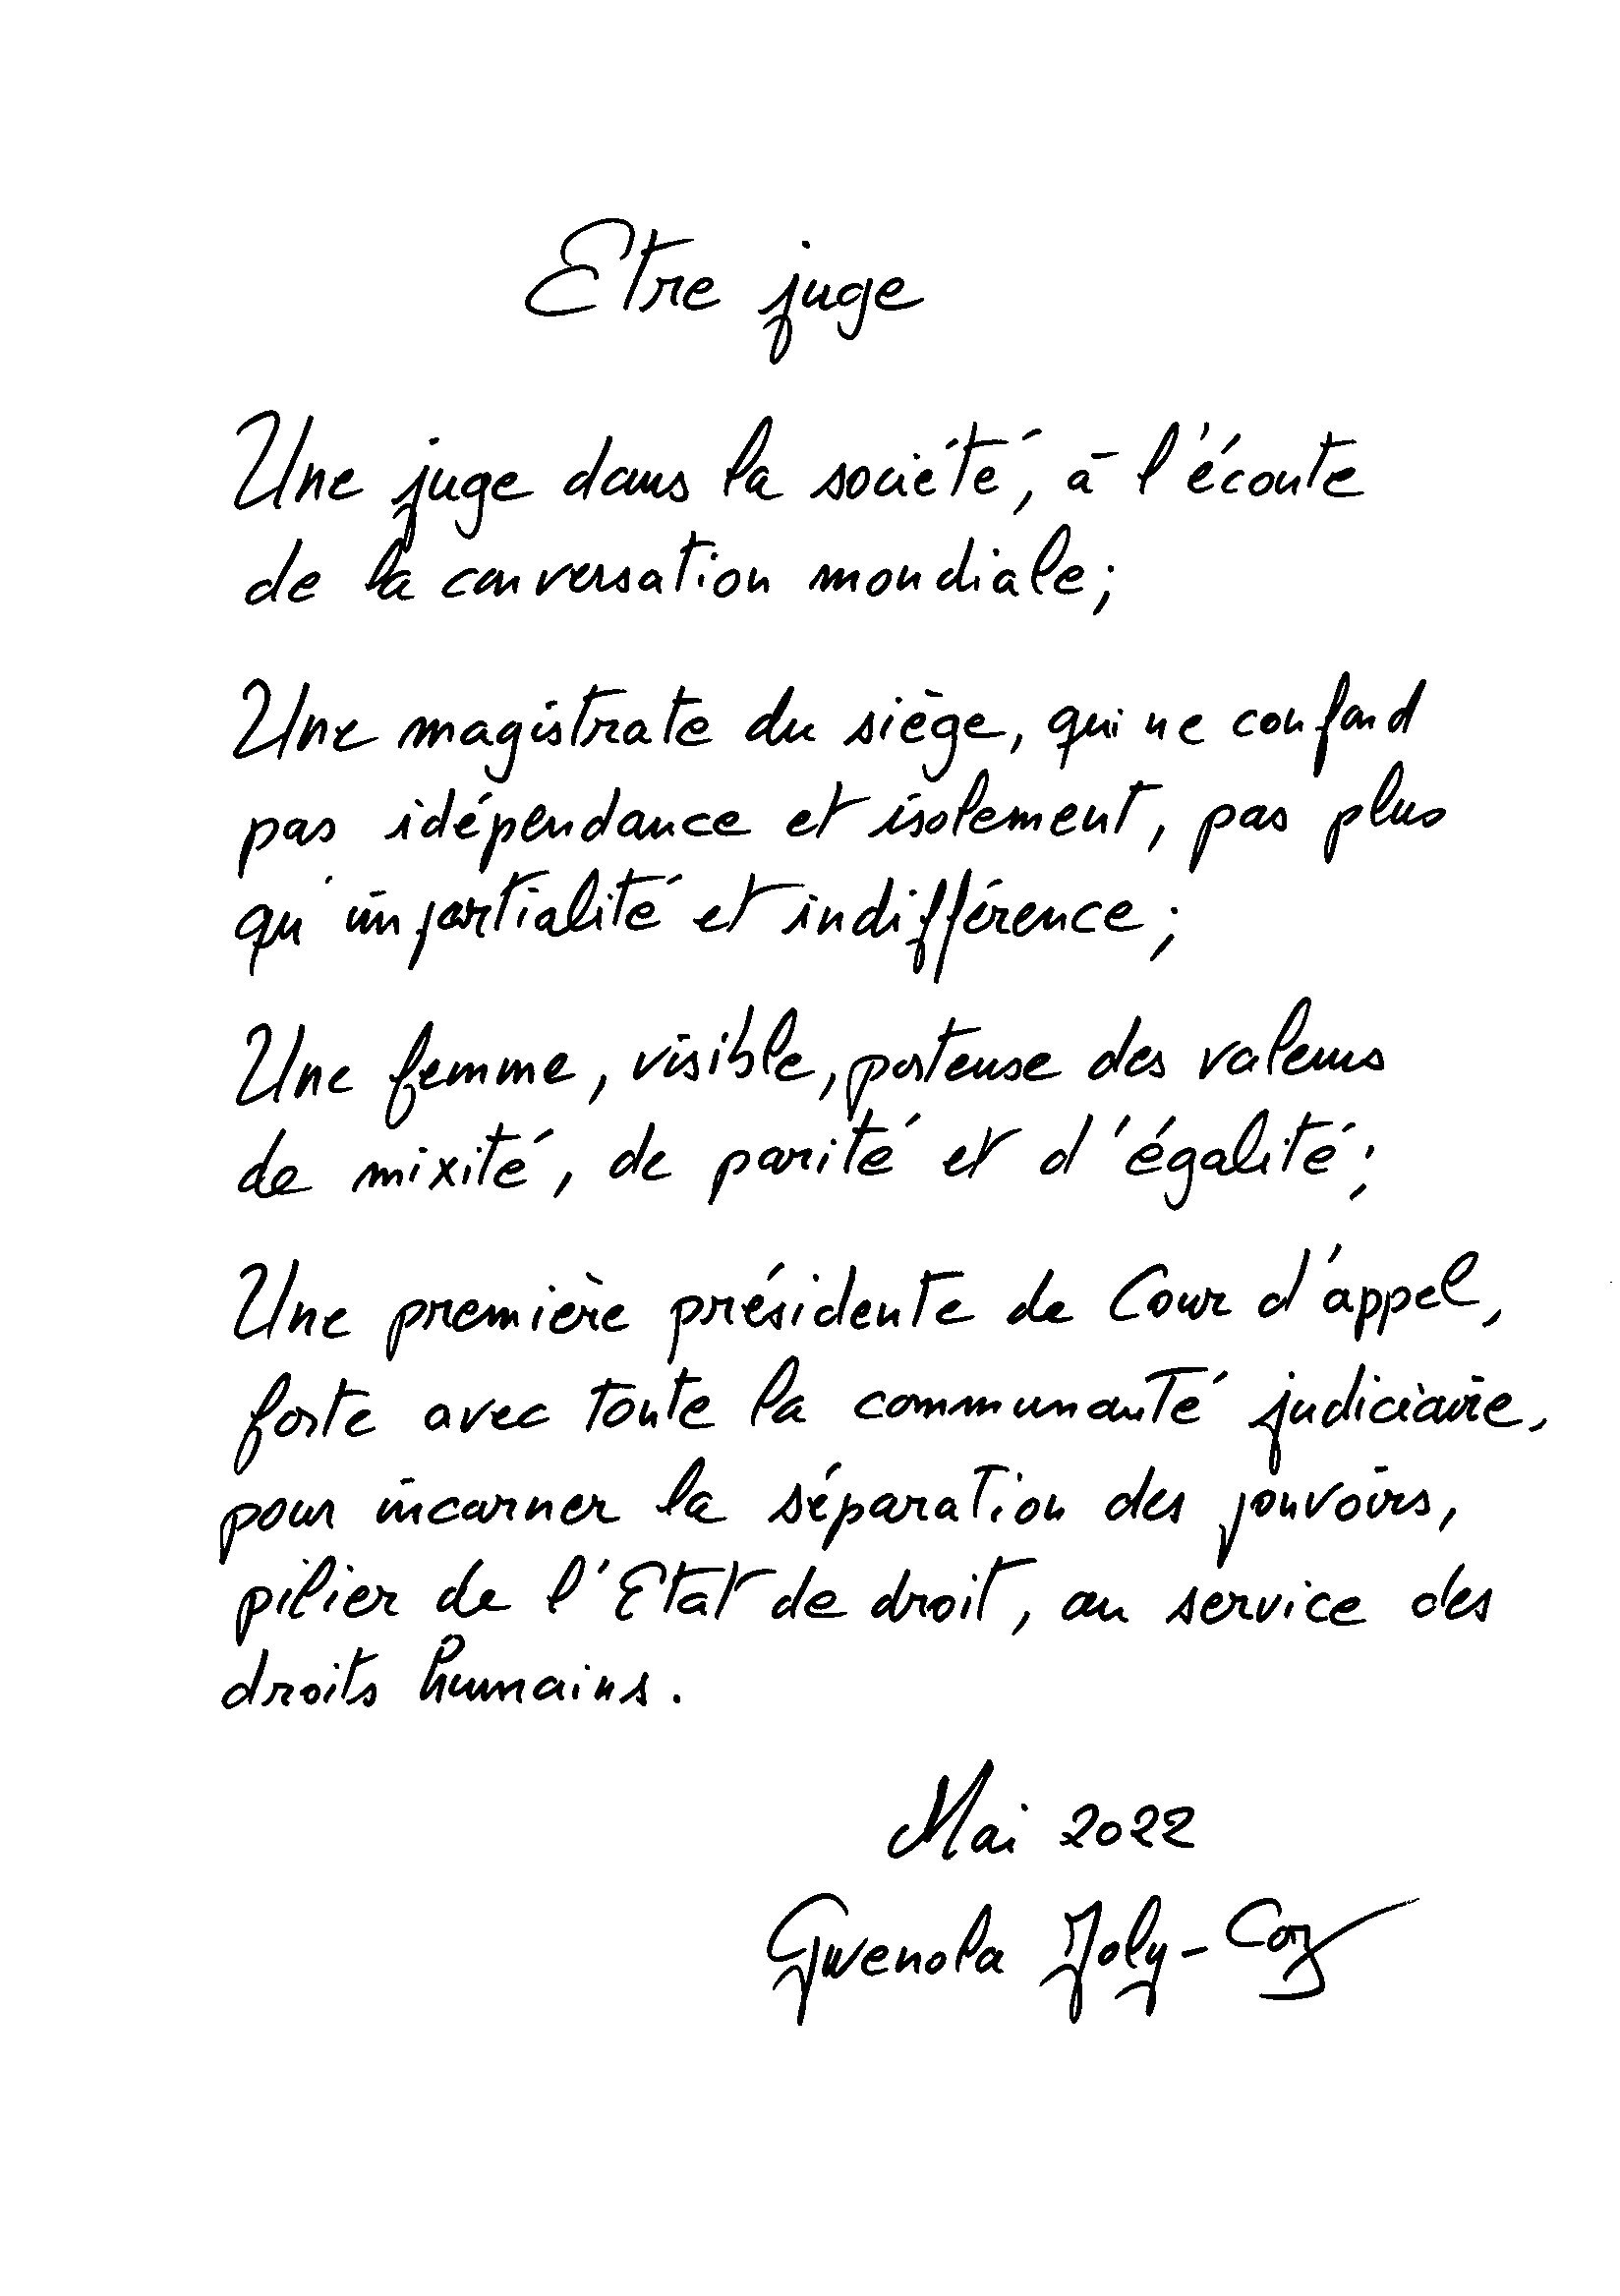 Etre juge
Une juge dans la société, à l'écoute
de la conversation mondiale;
Une magistrate du siège, qui ne confond
pas idépendance et isolement, pas plus
qu'impartialité et indifférence;
Une femme, visible, porteuse des valeurs
de mixité, de parité et d'égalité;
Une première présidente de Cour d'appel,
forte avec toute la communauté judiciaire,
pour incarner la séparation des pouvoirs,
pilier de l'Etat de droit, au service des
droits humains.
Mai 2022
Gwenola Joly-Coz